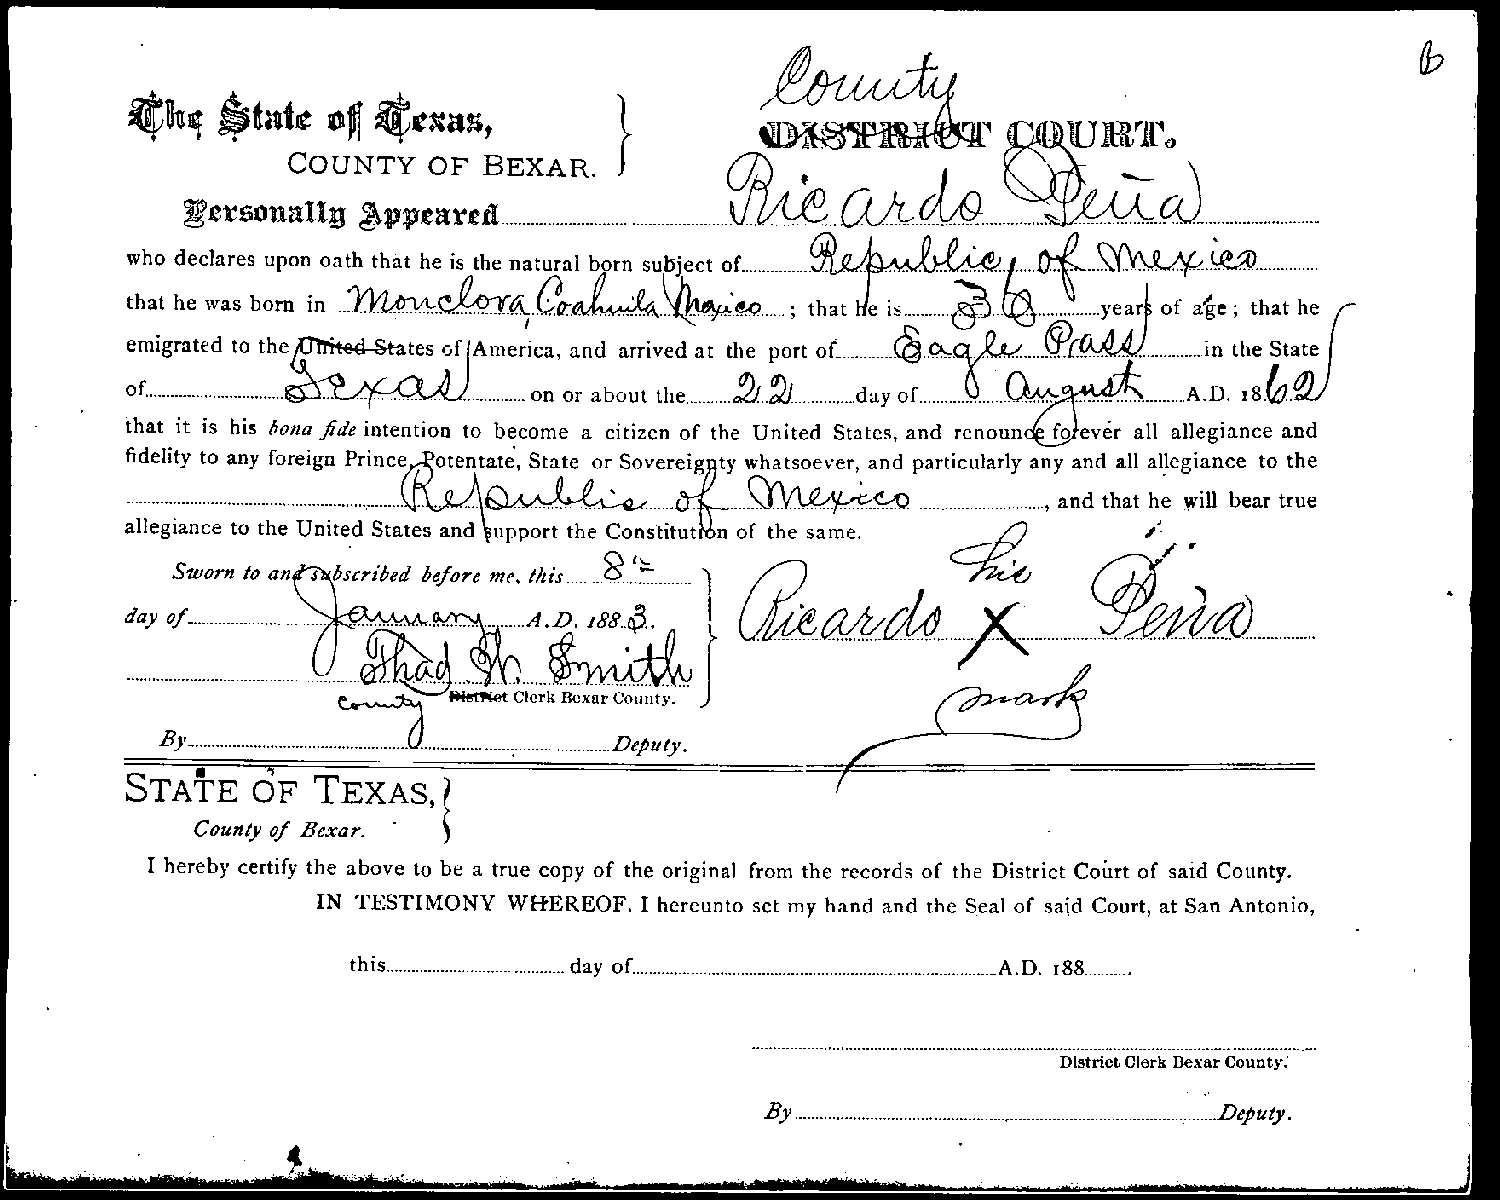 B
County
The State of Texas,
DISTRICT COURT.
COUNTY OF BEXAR.
Personally Appeared Ricardo Peña
who declares upon oath that he is the natural born subject of Republic, of Mexico
that he was born in Monclova, Coahuila Mexico ; that he is 36 years of age; that he
emigrated to the United States of America, and arrived at the port of Eagle Pass in the State
of Texas on or about the 22 day of August A.D. 1862
that it is his bona fide intention to become a citizen of the United States, and renounce forever all allegiance and
fidelity to any foreign Prince, Potentate, State or Sovereignty whatsoever, and particularly any and all allegiance to the
Republic of Mexico, and that he will bear true
allegiance to the United States and support the Constitution of the same.
Sworn to and subscribed before me, this 8th
day of January A.D. 1883.
Thad W. Smith
County District Clerk Bexar County.
By Deputy.
his
Ricardo X Peña
mark
STATE OF TEXAS,
County of Bexar.
I hereby certify the above to be a true copy of the original from the records of the District Court of said County.
IN TESTIMONY WHEREOF, I hereunto set my hand and the Seal of said Court, at San Antonio,
this day of A.D. 188
District Clerk Bexar County.
By Deputy.